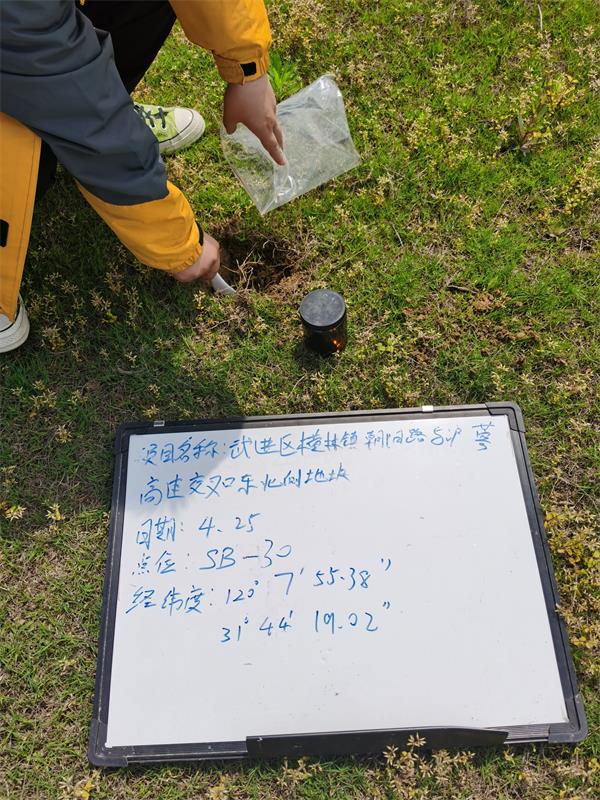 项目名称：武进区横林镇朝阳路与沪蓉
高速交叉口东北侧地块
日期：4.25
点位：SB-30
经纬度：120° 7′ 55.38″
31° 44′ 19.02″